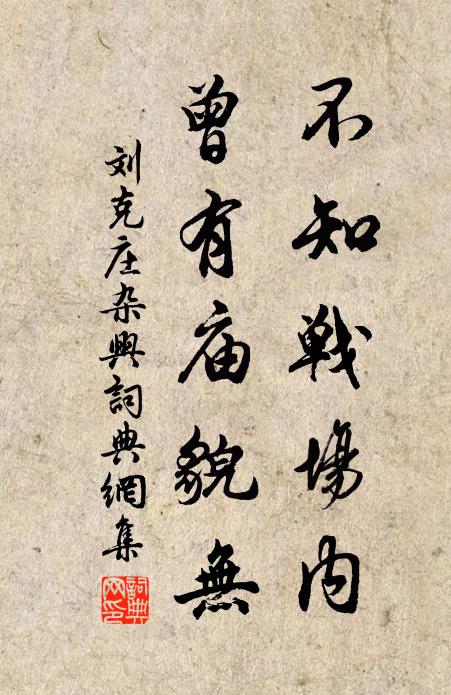 不知戰場内
曾有庙貌無
刘克庄杂興詞典網集
詞典網印